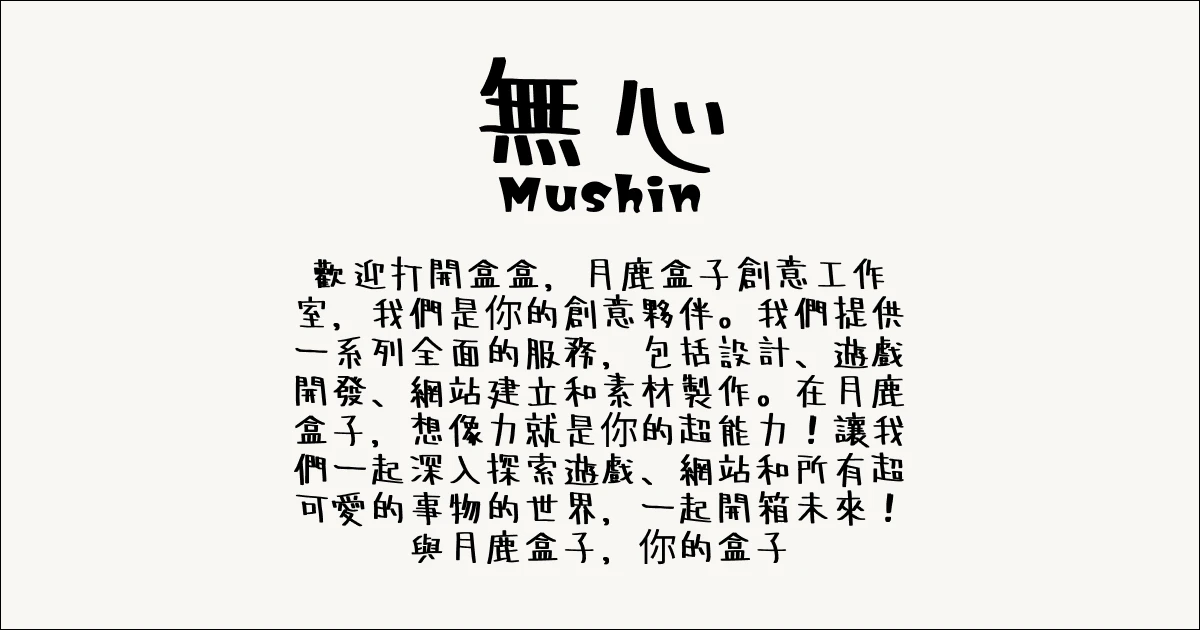 無心
Mushin
歡迎打開盒盒，月鹿盒子創意工作
室，我們是你的創意夥伴。我們提供
一系列全面的服務，包括設計、遊戲
開發、網站建立和素材製作。在月鹿
盒子，想像力就是你的超能力！讓我
們一起深入探索遊戲、網站和所有超
可愛的事物的世界，一起開箱未來！
與月鹿盒子，你的盒子